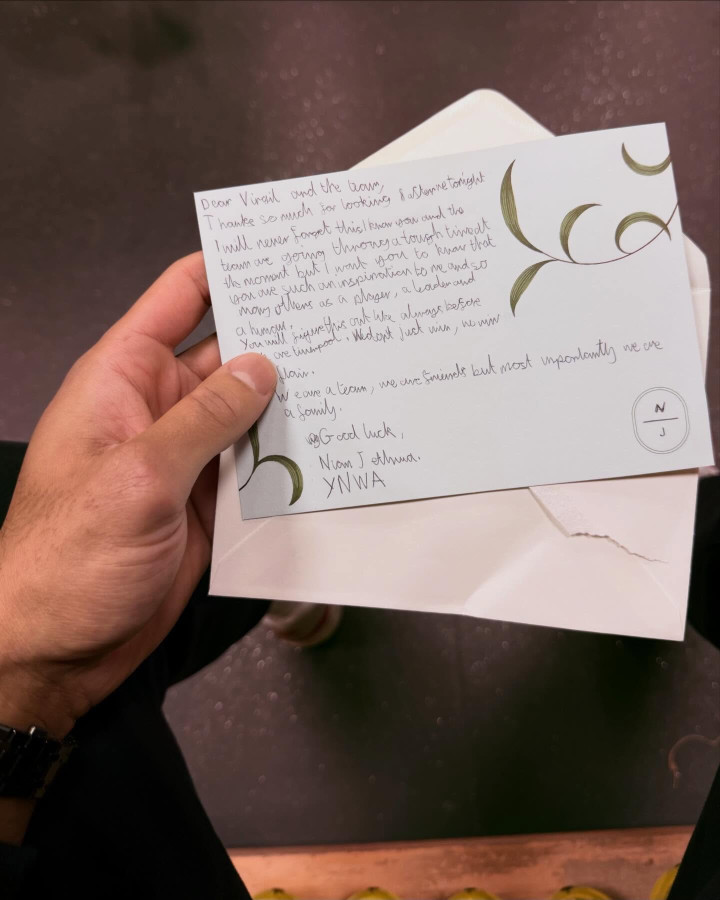 Dear Virgil and the team,
Thanks so much for looking after me tonight
I will never forget this. I know you and the
team are going through a tough time at
the moment but I want you to know that
you are such an inspiration to me and so
many others as a player, a leader and
a human.
You will figure this out like always before
are Liverpool. We dont just win, we win
flair.
We are a team, we are friends but most importantly we are
a family.
Good luck,
J
YNWA
N
J